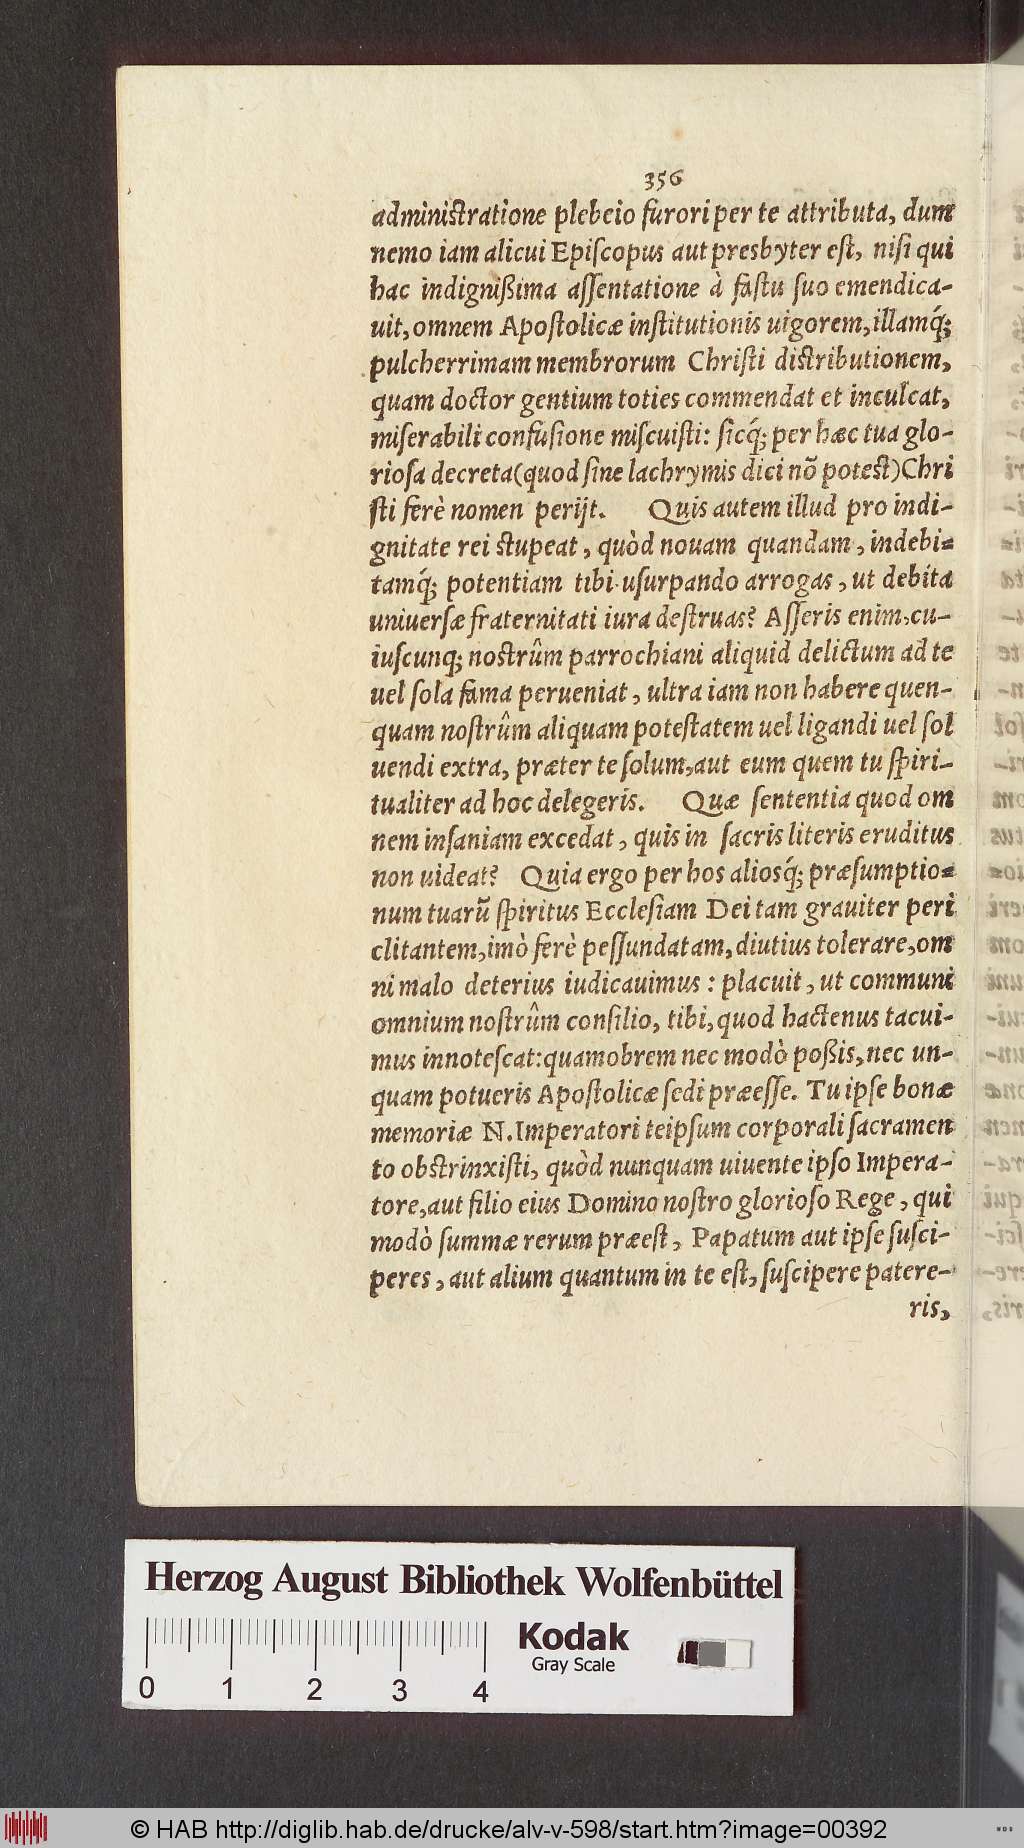 356
adminiſtratione plebeio furori per te attributa, dum
nemo iam alicui Epiſcopus aut presbyter eſt, niſi qui
hac indignißima aſſentatione à faſtu ſuo emendica-
uit, omnem Apoſtolicæ inſtitutionis uigorem, illamq́;
pulcherrimam membrorum Chriſti diſtributionem,
quam doctor gentium toties commendat et inculcat,
miſerabili confuſione miſcuiſti: ſicq́; per hæc tua glo-
rioſa decreta (quod ſine lachrymis dici nõ poteſt) Chri
ſti ferè nomen perijt. Quis autem illud pro indi-
gnitate rei ſtupeat, quòd nouam quandam, indebi-
tamq́; potentiam tibi uſurpando arrogas, ut debita
uniuerſæ fraternitati iura deſtruas? Aſſeris enim, cu-
iuſcunq; noſtrûm parrochiani aliquid delictum ad te
uel ſola fama perueniat, ultra iam non habere quen-
quam noſtrûm aliquam poteſtatem uel ligandi uel ſol
uendi extra, præter te ſolum, aut eum quem tu ſpiri-
tualiter ad hoc delegeris. Quæ ſententia quod om
nem inſaniam excedat, quis in ſacris literis eruditus
non uideat? Quia ergo per hos aliosq́; præſumptio-
num tuarũ ſpiritus Eccleſiam Dei tam grauiter peri
clitantem, imò ferè peſſundatam, diutius tolerare, om
ni malo deterius iudicauimus: placuit, ut communi
omnium noſtrûm conſilio, tibi, quod hactenus tacui-
mus innoteſcat: quamobrem nec modò poßis, nec un-
quam potueris Apoſtolicæ ſedi præeſſe. Tu ipſe bonæ
memoriæ N. Imperatori teipſum corporali ſacramen
to obſtrinxiſti, quòd nunquam uiuente ipſo Impera-
tore, aut filio eius Domino noſtro glorioſo Rege, qui
modò ſummæ rerum præeſt, Papatum aut ipſe ſuſci-
peres, aut alium quantum in te eſt, ſuſcipere patere-
ris,
Herzog August Bibliothek Wolfenbüttel
Kodak
Gray Scale
0 1 2 3 4
© HAB http://diglib.hab.de/drucke/alv-v-598/start.htm?image=00392